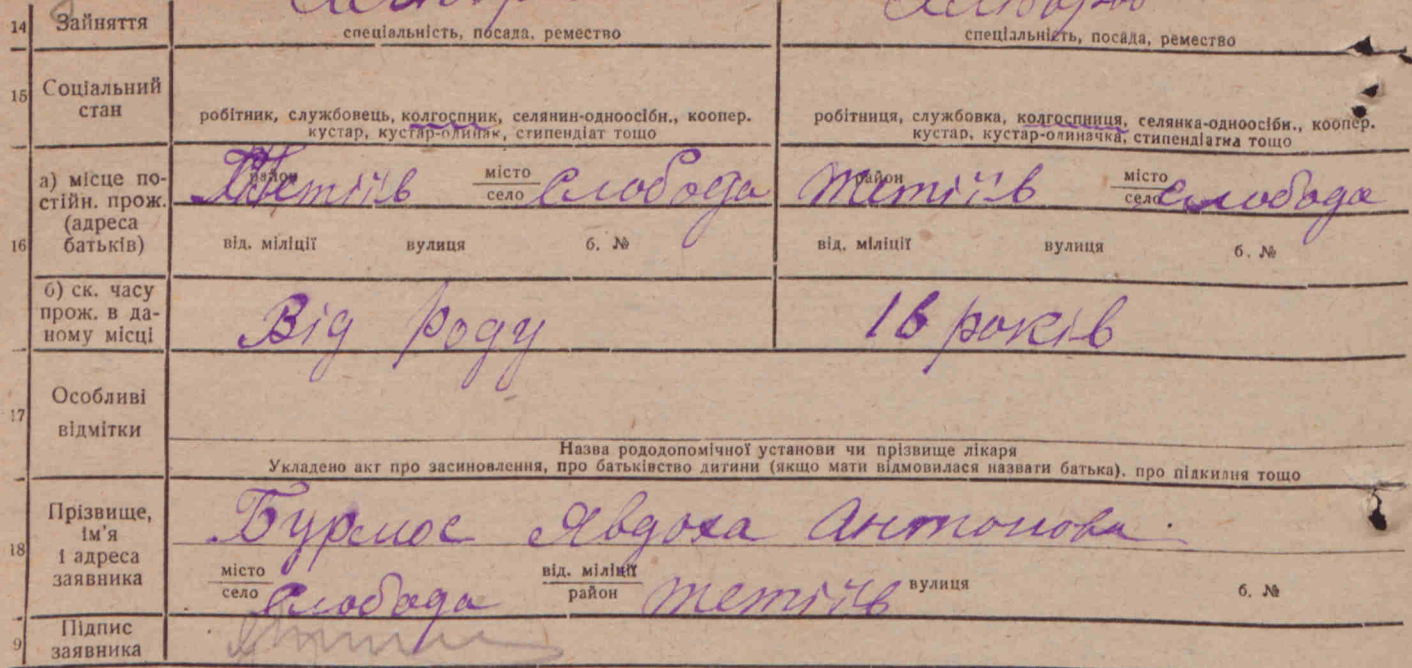 14 Зайняття
спеціальність, посада, ремество спеціальність, посада, ремество
15 Соціальний
стан
робітник, службовець, колгоспник, селянин-одноосібн., коопер.
кустар, кустар-одинак, стипендіат тощо
робітниця, службовка, колгоспниця, селянка-одноосібн., коопер.
кустар, кустар-одиначка, стипендіатка тощо
16 а) місце по-
стійн. прож.
(адреса
батьків)
район Тетіїв місто
село Слобода
район Тетіїв місто
село Слобода
від. міліції вулиця б. №
від. міліції вулиця б. №
б) ск. часу
прож. в да-
ному місці
Від роду
16 років
17 Особливі
відмітки
Назва рододопомічної установи чи прізвище лікаря
Укладено акт про засиновлення, про батьківство дитини (якщо мати відмовилася назвати батька), про підкидня тощо
18 Прізвище,
ім'я
і адреса
заявника
Бурмос Явдоха Антонова
місто
село Слобода від. міліції
район Тетіїв вулиця б. №
9 Підпис
заявника